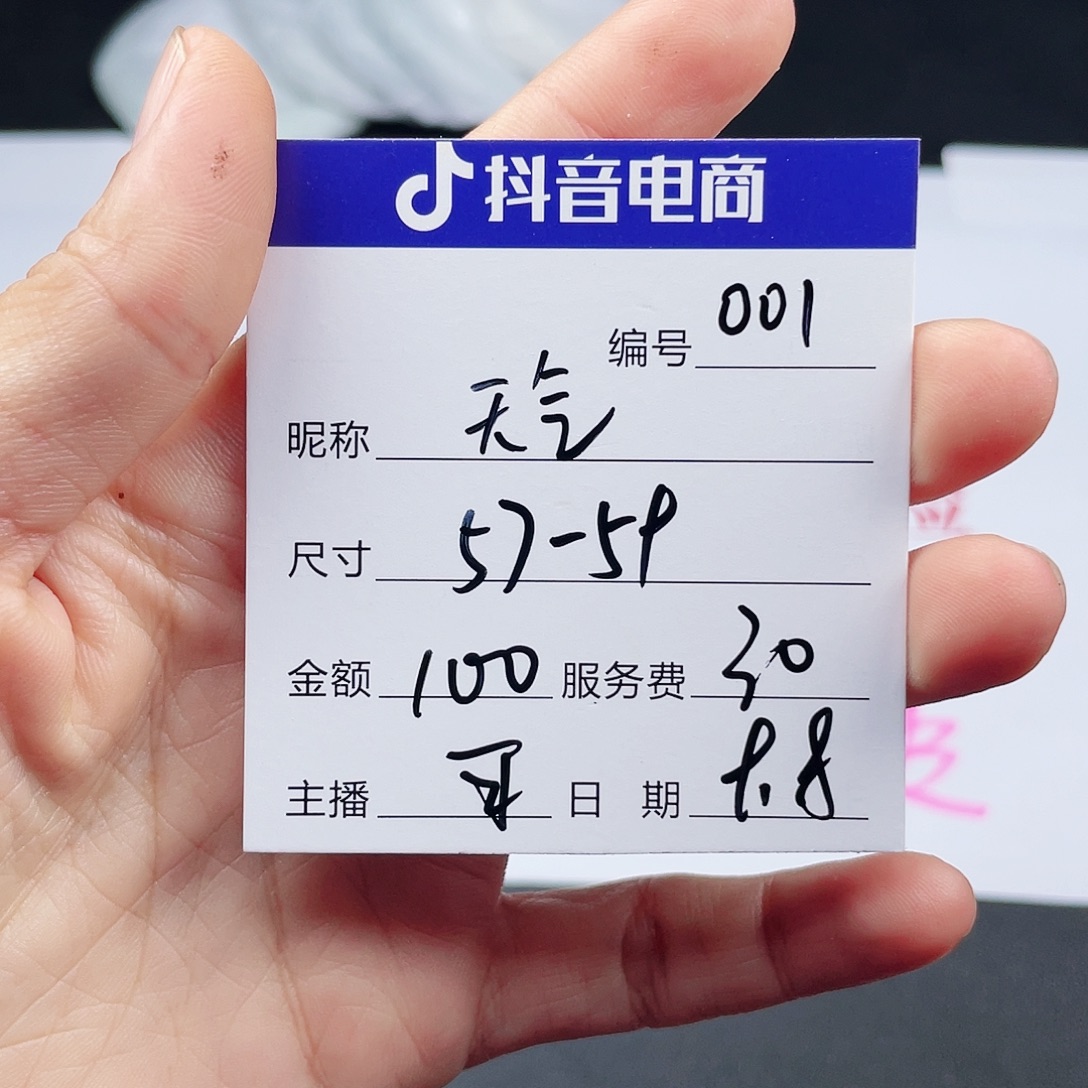 抖音电商
编号 001
昵称 天气
尺寸 57-59
金额 100 服务费 30
主播 日期